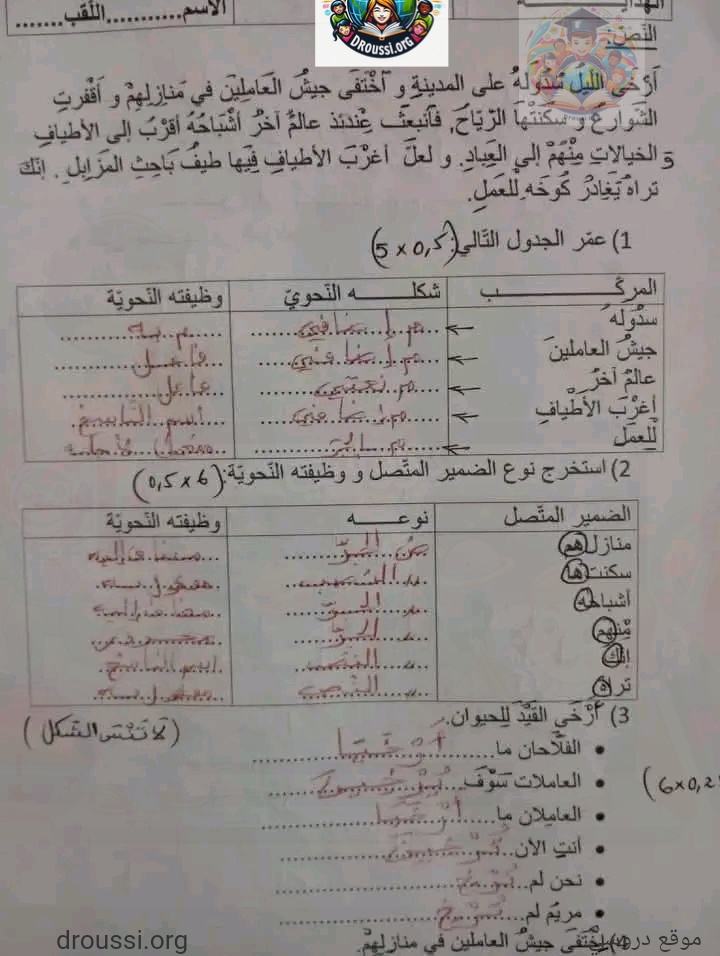 الاسم...........اللقب.......
Droussi.org
النص:
أَرْخَى اللَّيل سُدُولَهُ على المدينةِ و اَخْتَفَى جيشُ العَامِلِيْنَ في مَنازِلِهِمْ و أَقْفَرتِ
الشَّوارِعُ و سَكَنَتْهَا الرِّيَاحُ, فَاَنبعَثَ عِنْدَئذ عالمٌ آخرُ أشْبَاحُهُ أقرْبُ إلى الأطيافِ
و الخيالاتِ مِنْهُمْ إلى العِبادِ. و لعلّ أغرْبَ الأطيافِ فِيها طيفُ بَاحِثِ المزَابلِ . إنّك
تراهُ يُغَادرُ كُوخَه لِلْعملِ.
1) عمّر الجدول التّالي:(0,5 × 5)
المركّب شكله النّحويّ وظيفته النّحويّة
سدُولَهُ م. إضافي م. به
جيشُ العاملينَ م. إضافي فاعل
عالمٌ آخرُ م. نعتي فاعل
أغرْبَ الأطْيافِ م. إضافي اسم الناسخ
لِلْعمَلِ
2) استخرج نوع الضمير المتّصل و وظيفته النّحويّة:(0,5 × 6)
الضمير المتّصل نوعه وظيفته النّحويّة
منازلهم الجرّ مضاف إليه
سكنتها النصب مفعول به
أشباحه الجرّ مضاف إليه
مِنْهم الجرّ
إنّك النصب اسم الناسخ
تراه النصب مفعول به
3) أَرْخَى القَيْدَ لِلحيوان.
(لا تَنْسَ الشّكل)
• الفلاّحان ما.....أرْخَيَا
• العاملات سَوْفَ...يُرْخِينَ (6×0,25
• العاملان ما.....أرْخَيَا
• أنتِ الآن..تُرْخِينَ
• نحن لم....نُرْخِ
• مريمُ لم....تُرْخِ
4) اِخْتَفَى جيشُ العاملين في منازلِهِمْ.
droussi.org
موقع دروسي